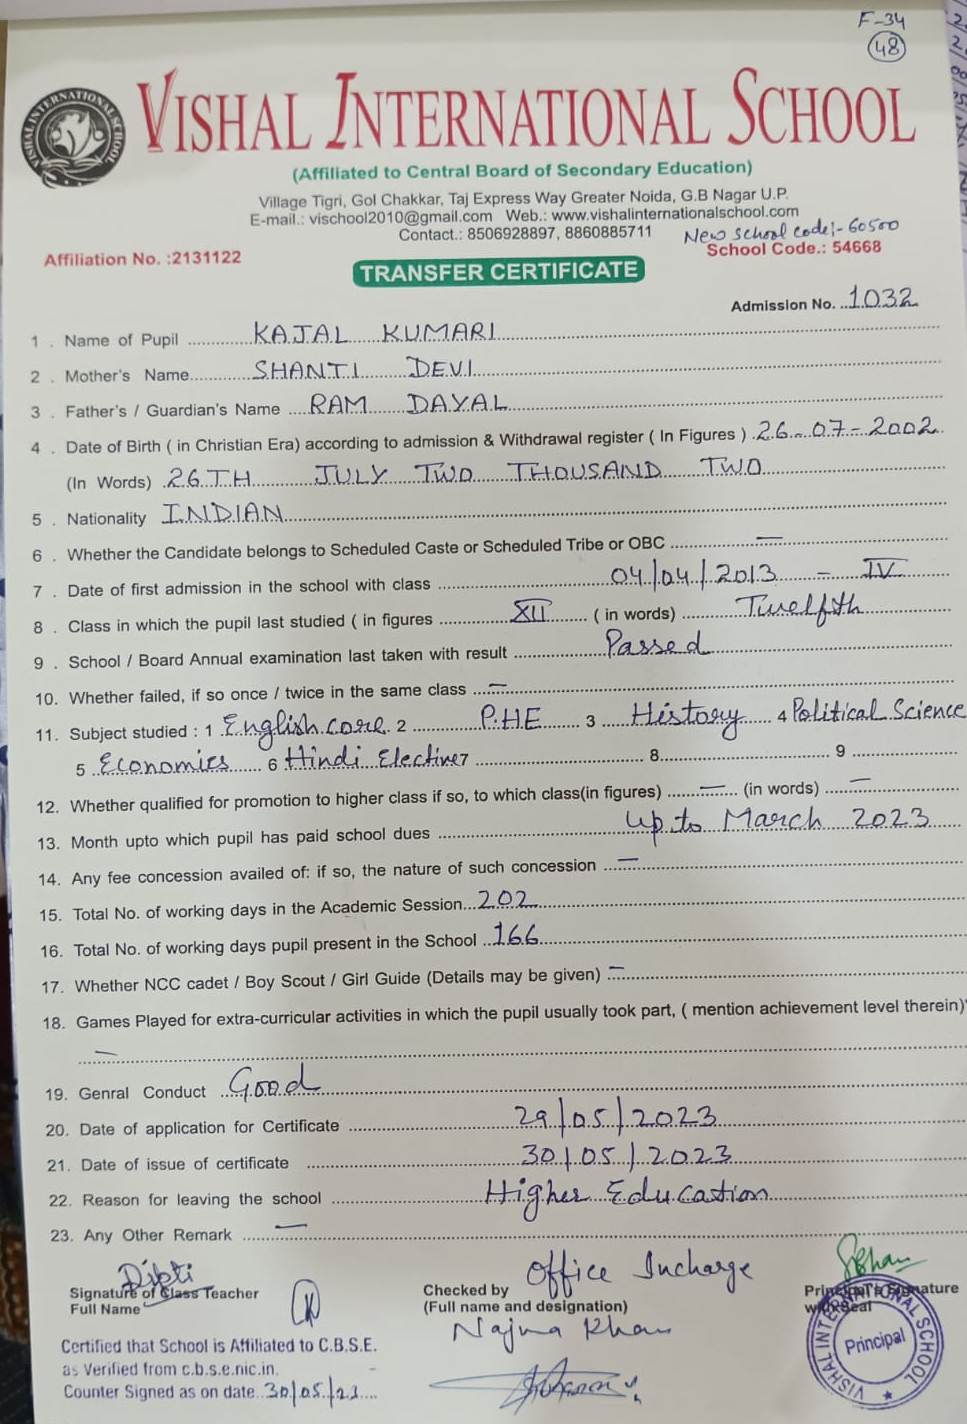 F-34
48
VISHAL INTERNATIONAL SCHOOL
VISHAL INTERNATIONAL SCHOOL
(Affiliated to Central Board of Secondary Education)
Village Tigri, Gol Chakkar, Taj Express Way Greater Noida, G.B Nagar U.P.
E-mail.: vischool2010@gmail.com Web.: www.vishalinternationalschool.com
Contact.: 8506928897, 8860885711
New School code:- 60500
Affiliation No. :2131122
School Code.: 54668
TRANSFER CERTIFICATE
Admission No. 1032
1 . Name of Pupil KAJAL KUMARI
2 . Mother's Name SHANTI DEVI
3 . Father's / Guardian's Name RAM DAYAL
4 . Date of Birth ( in Christian Era) according to admission & Withdrawal register ( In Figures ) 26-07-2002
(In Words) 26TH JULY TWO THOUSAND TWO
5 . Nationality INDIAN
6 . Whether the Candidate belongs to Scheduled Caste or Scheduled Tribe or OBC —
7 . Date of first admission in the school with class 04/04/2013 - IV
8 . Class in which the pupil last studied ( in figures XII ( in words) Twelfth
9 . School / Board Annual examination last taken with result Passed
10. Whether failed, if so once / twice in the same class —
11. Subject studied : 1 English core 2 P.H.E 3 History 4 Political Science
5 Economics 6 Hindi Elective 7 8 9
12. Whether qualified for promotion to higher class if so, to which class(in figures) — (in words) —
13. Month upto which pupil has paid school dues up to March 2023
14. Any fee concession availed of: if so, the nature of such concession —
15. Total No. of working days in the Academic Session 202
16. Total No. of working days pupil present in the School 166
17. Whether NCC cadet / Boy Scout / Girl Guide (Details may be given) —
18. Games Played for extra-curricular activities in which the pupil usually took part, ( mention achievement level therein)
—
19. Genral Conduct Good
20. Date of application for Certificate 29/05/2023
21. Date of issue of certificate 30/05/2023
22. Reason for leaving the school Higher Educastion
23. Any Other Remark —
Dipti
Signature of Class Teacher
Full Name
Office Incharge
Checked by
(Full name and designation)
Najma Khan
Principal's Signature
with Seal
VISHAL INTERNATIONAL SCHOOL
Principal
Certified that School is Affiliated to C.B.S.E.
as Verified from c.b.s.e.nic.in.
Counter Signed as on date 30/05/23